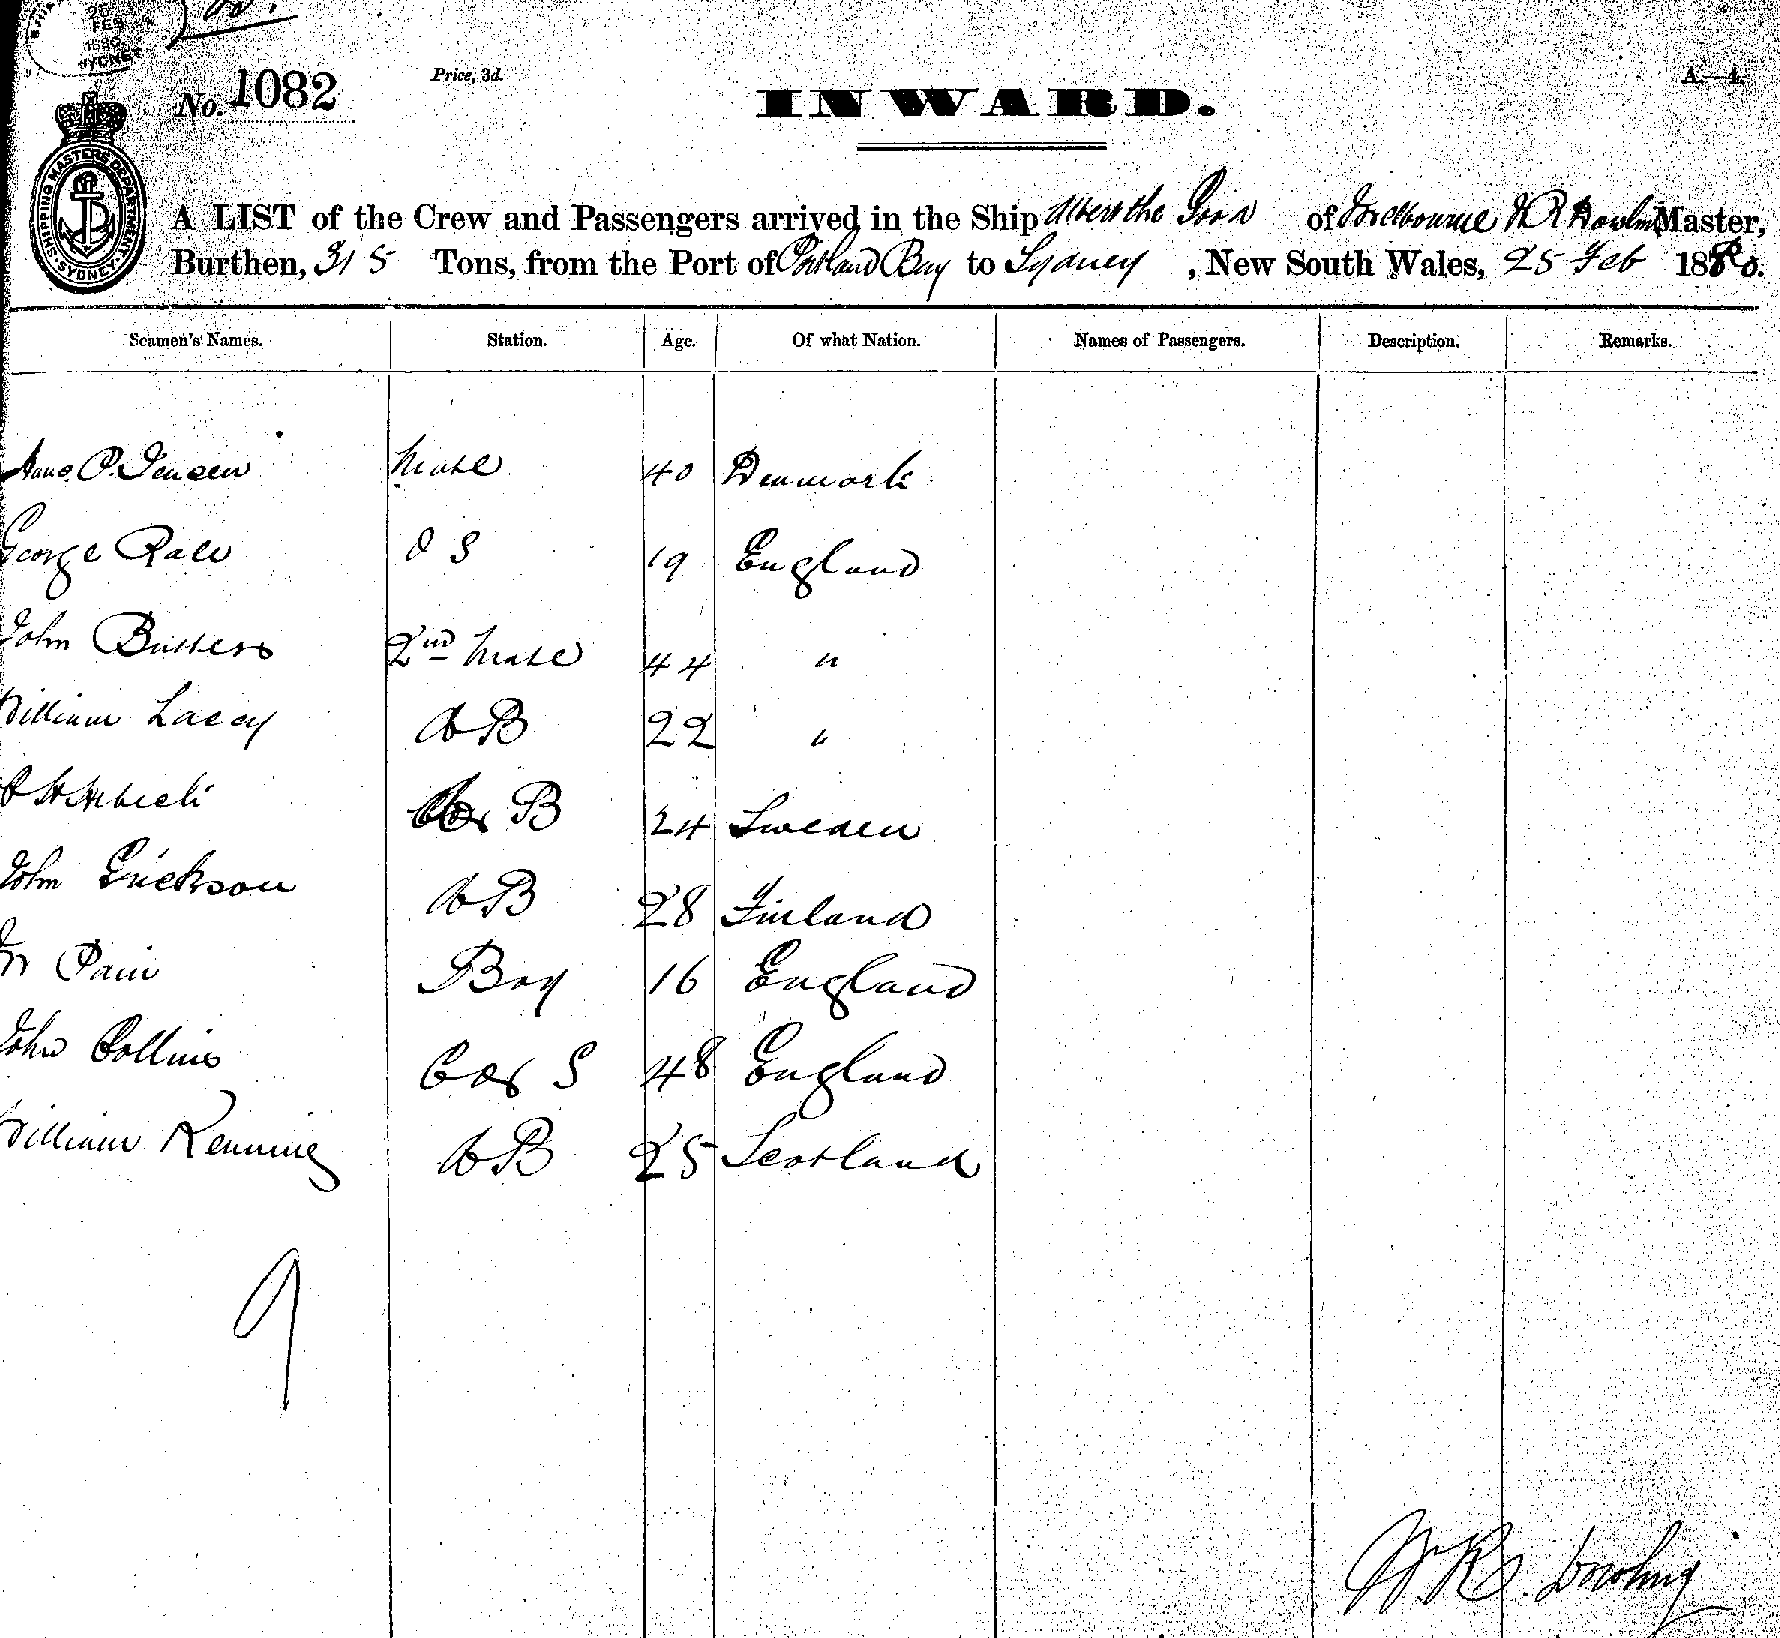 No. 1082
Price, 3d.
INWARD.
A—4
SHIPPING MASTERS DEPARTMENT SYDNEY
A LIST of the Crew and Passengers arrived in the Ship Albert the Good of Melbourne W R Dowling Master,
Burthen, 315 Tons, from the Port of Portland Bay to Sydney, New South Wales, 25 Feb 1880.
Seamen's Names. Station. Age. Of what Nation. Names of Passengers. Description. Remarks.
Hans P. Jensen Mate 40 Denmark
George O S 19 England
John Butters 2nd Mate 44 "
William Lacey AB 22 "
B 24 Sweden
John Erickson AB 28 Finland
W Pain Boy 16 England
John Collins Cox S 48 England
William Kenning AB 25 Scotland
9
W. R. Dowling